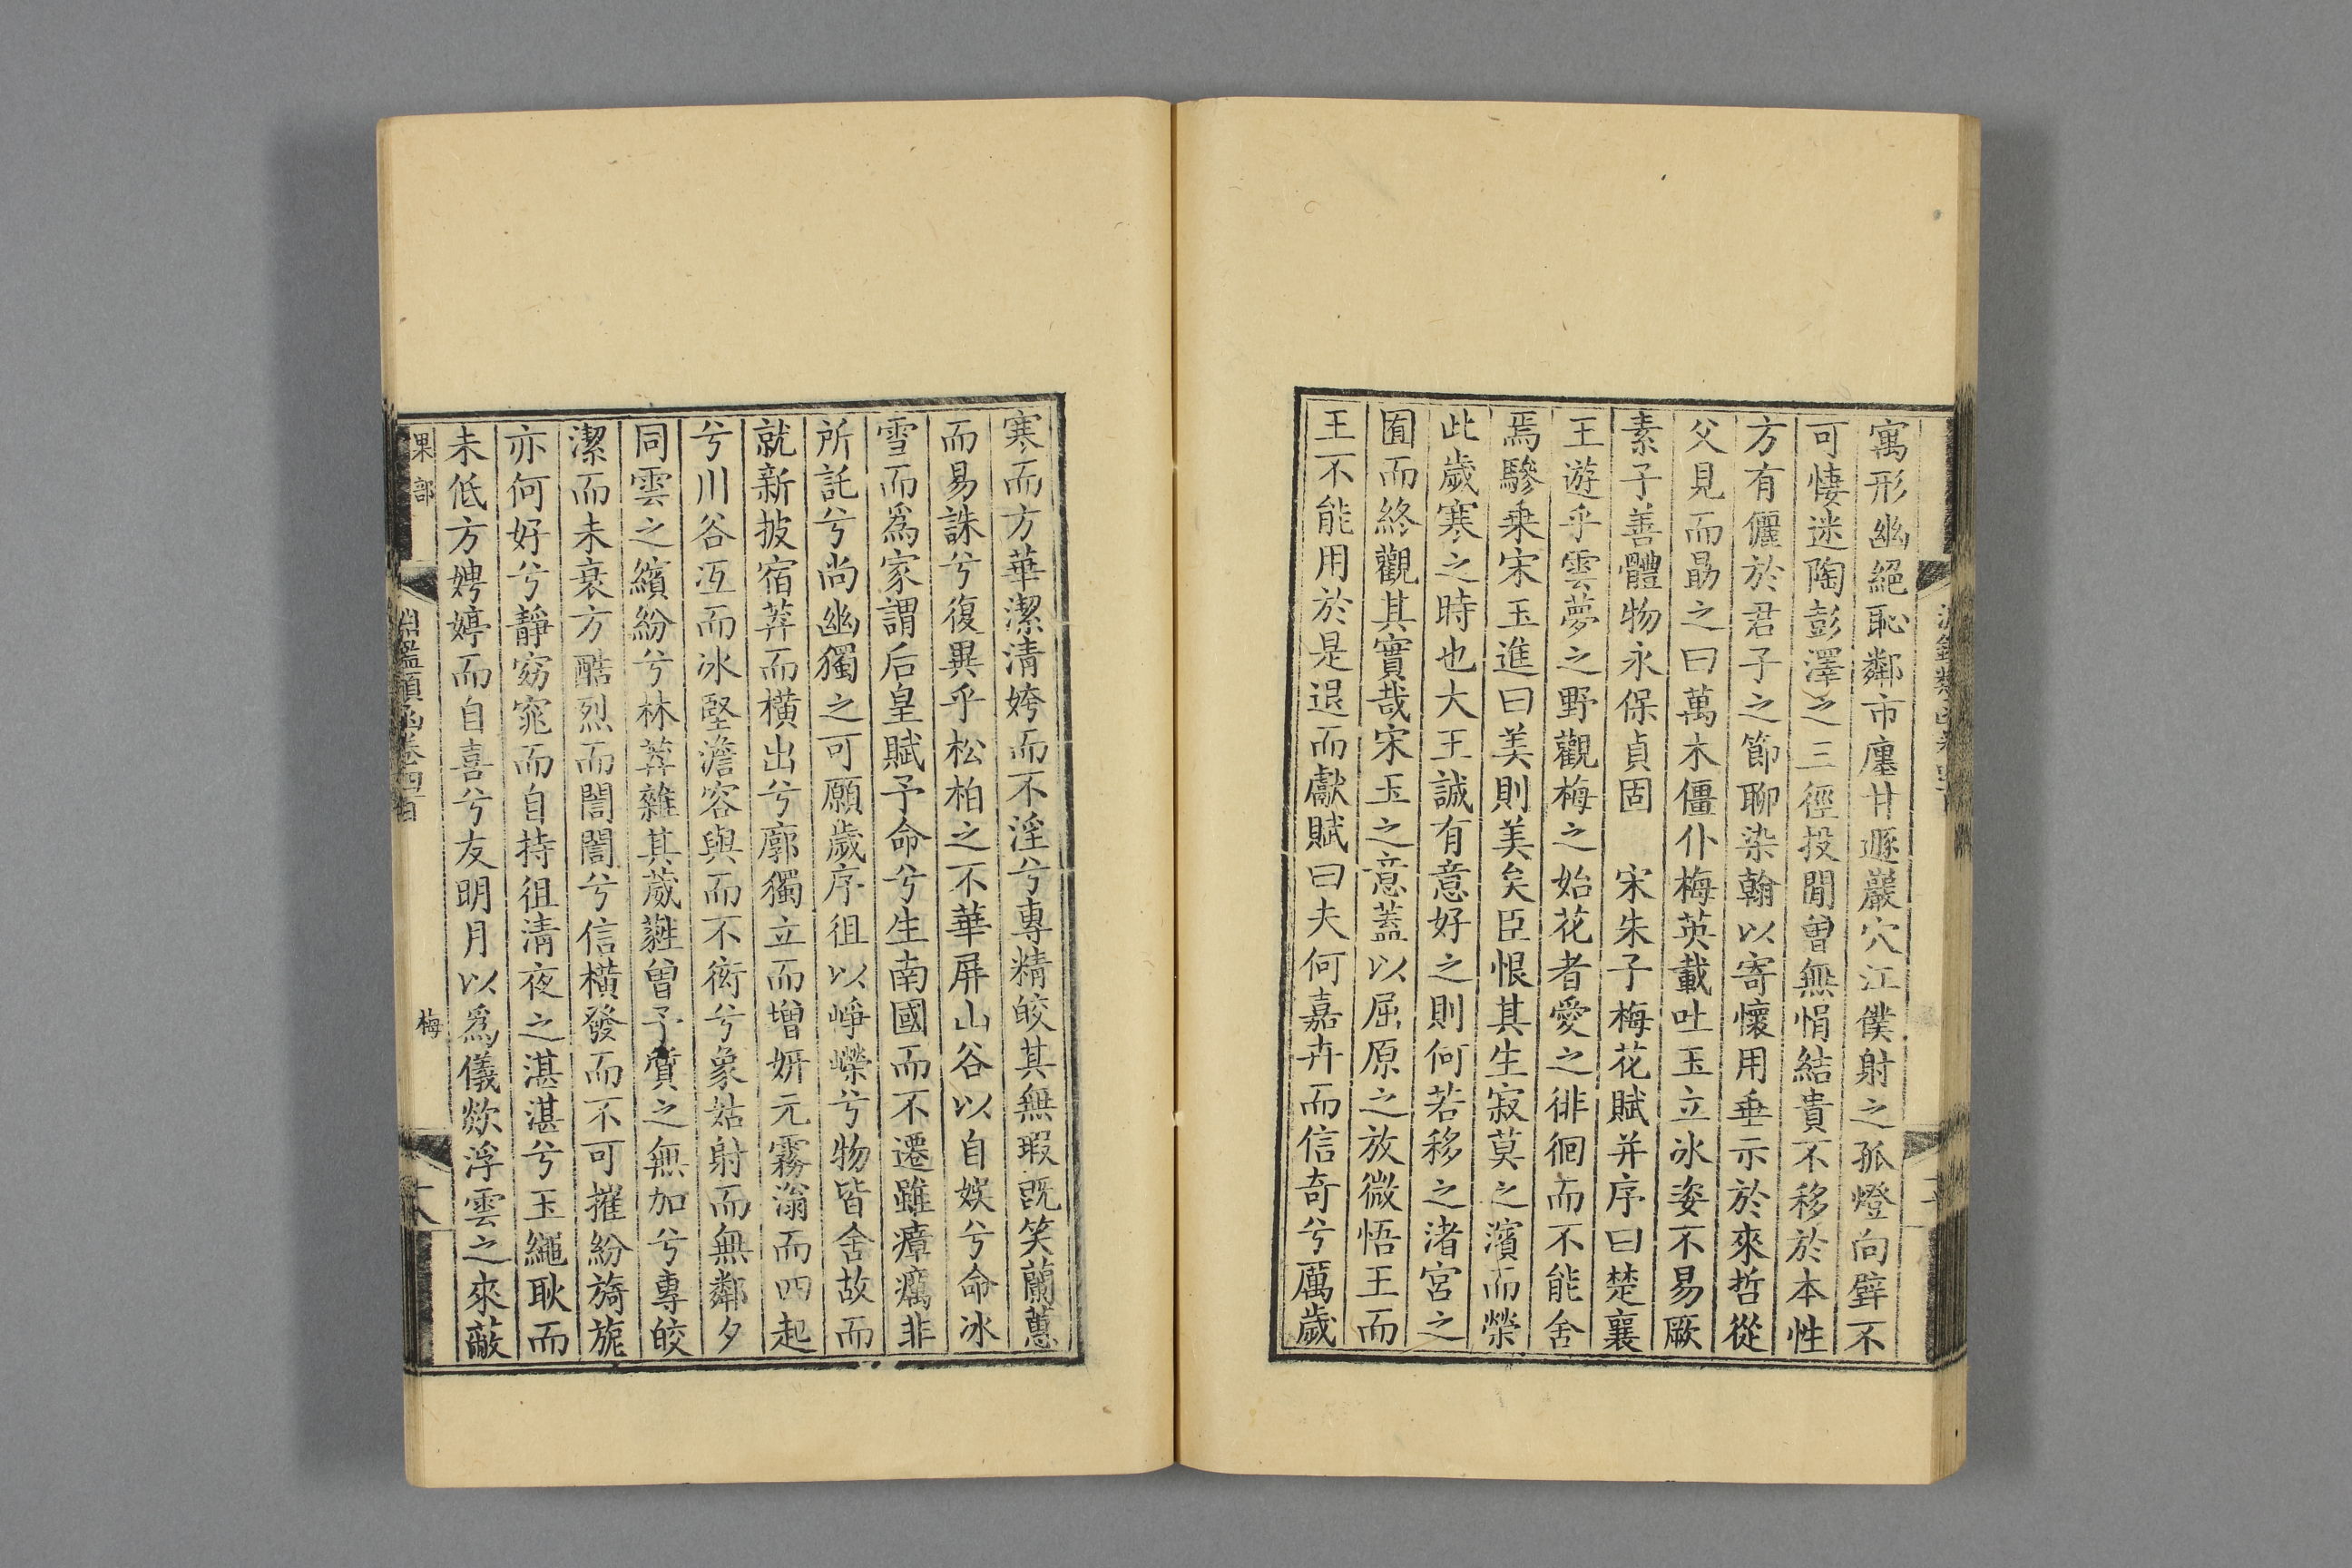 寓形幽絕恥鄰市廛甘遯巖穴江僕射之孤燈向壁不
可悽迷陶彭澤之三徑投閒曾無悁結貴不移於本性
方有儷於君子之節聊染翰以寄懷用垂示於來哲從
父見而勗之曰萬木僵仆梅英載吐玉立冰姿不易厥
素子善體物永保貞固　宋朱子梅花賦并序曰楚襄
王遊乎雲夢之野觀梅之始花者愛之徘徊而不能舍
焉驂乗宋玉進曰美則美矣臣恨其生寂莫之濱而榮
此歲寒之時也大王誠有意好之則何若移之渚宮之
囿而終觀其實哉宋玉之意蓋以屈原之放微悟王而
王不能用於是退而獻賦曰夫何嘉卉而信奇兮厲歲
寒而方華潔清姱而不淫兮專精皎其無瑕旣笑蘭蕙
而易誅兮復異乎松柏之不華屏山谷以自娭兮命冰
雪而爲家謂后皇賦予命兮生南國而不遷雖瘴癘非
所託兮尚幽獨之可願歲序徂以崢嶸兮物皆舍故而
就新披宿莽而橫出兮廓獨立而增妍元霧滃而四起
兮川谷冱而冰堅澹容與而不衒兮象姑射而無鄰夕
同雲之繽紛兮林莽雜其葳蕤曾予質之無加兮專皎
潔而未衰方酷烈而誾誾兮信橫發而不可摧紛旖旎
亦何好兮靜窈窕而自持徂清夜之湛湛兮玉繩耿而
未低方娉婷而自喜兮友明月以爲儀欻浮雲之來蔽
果部
淵鑑類函卷四百
梅